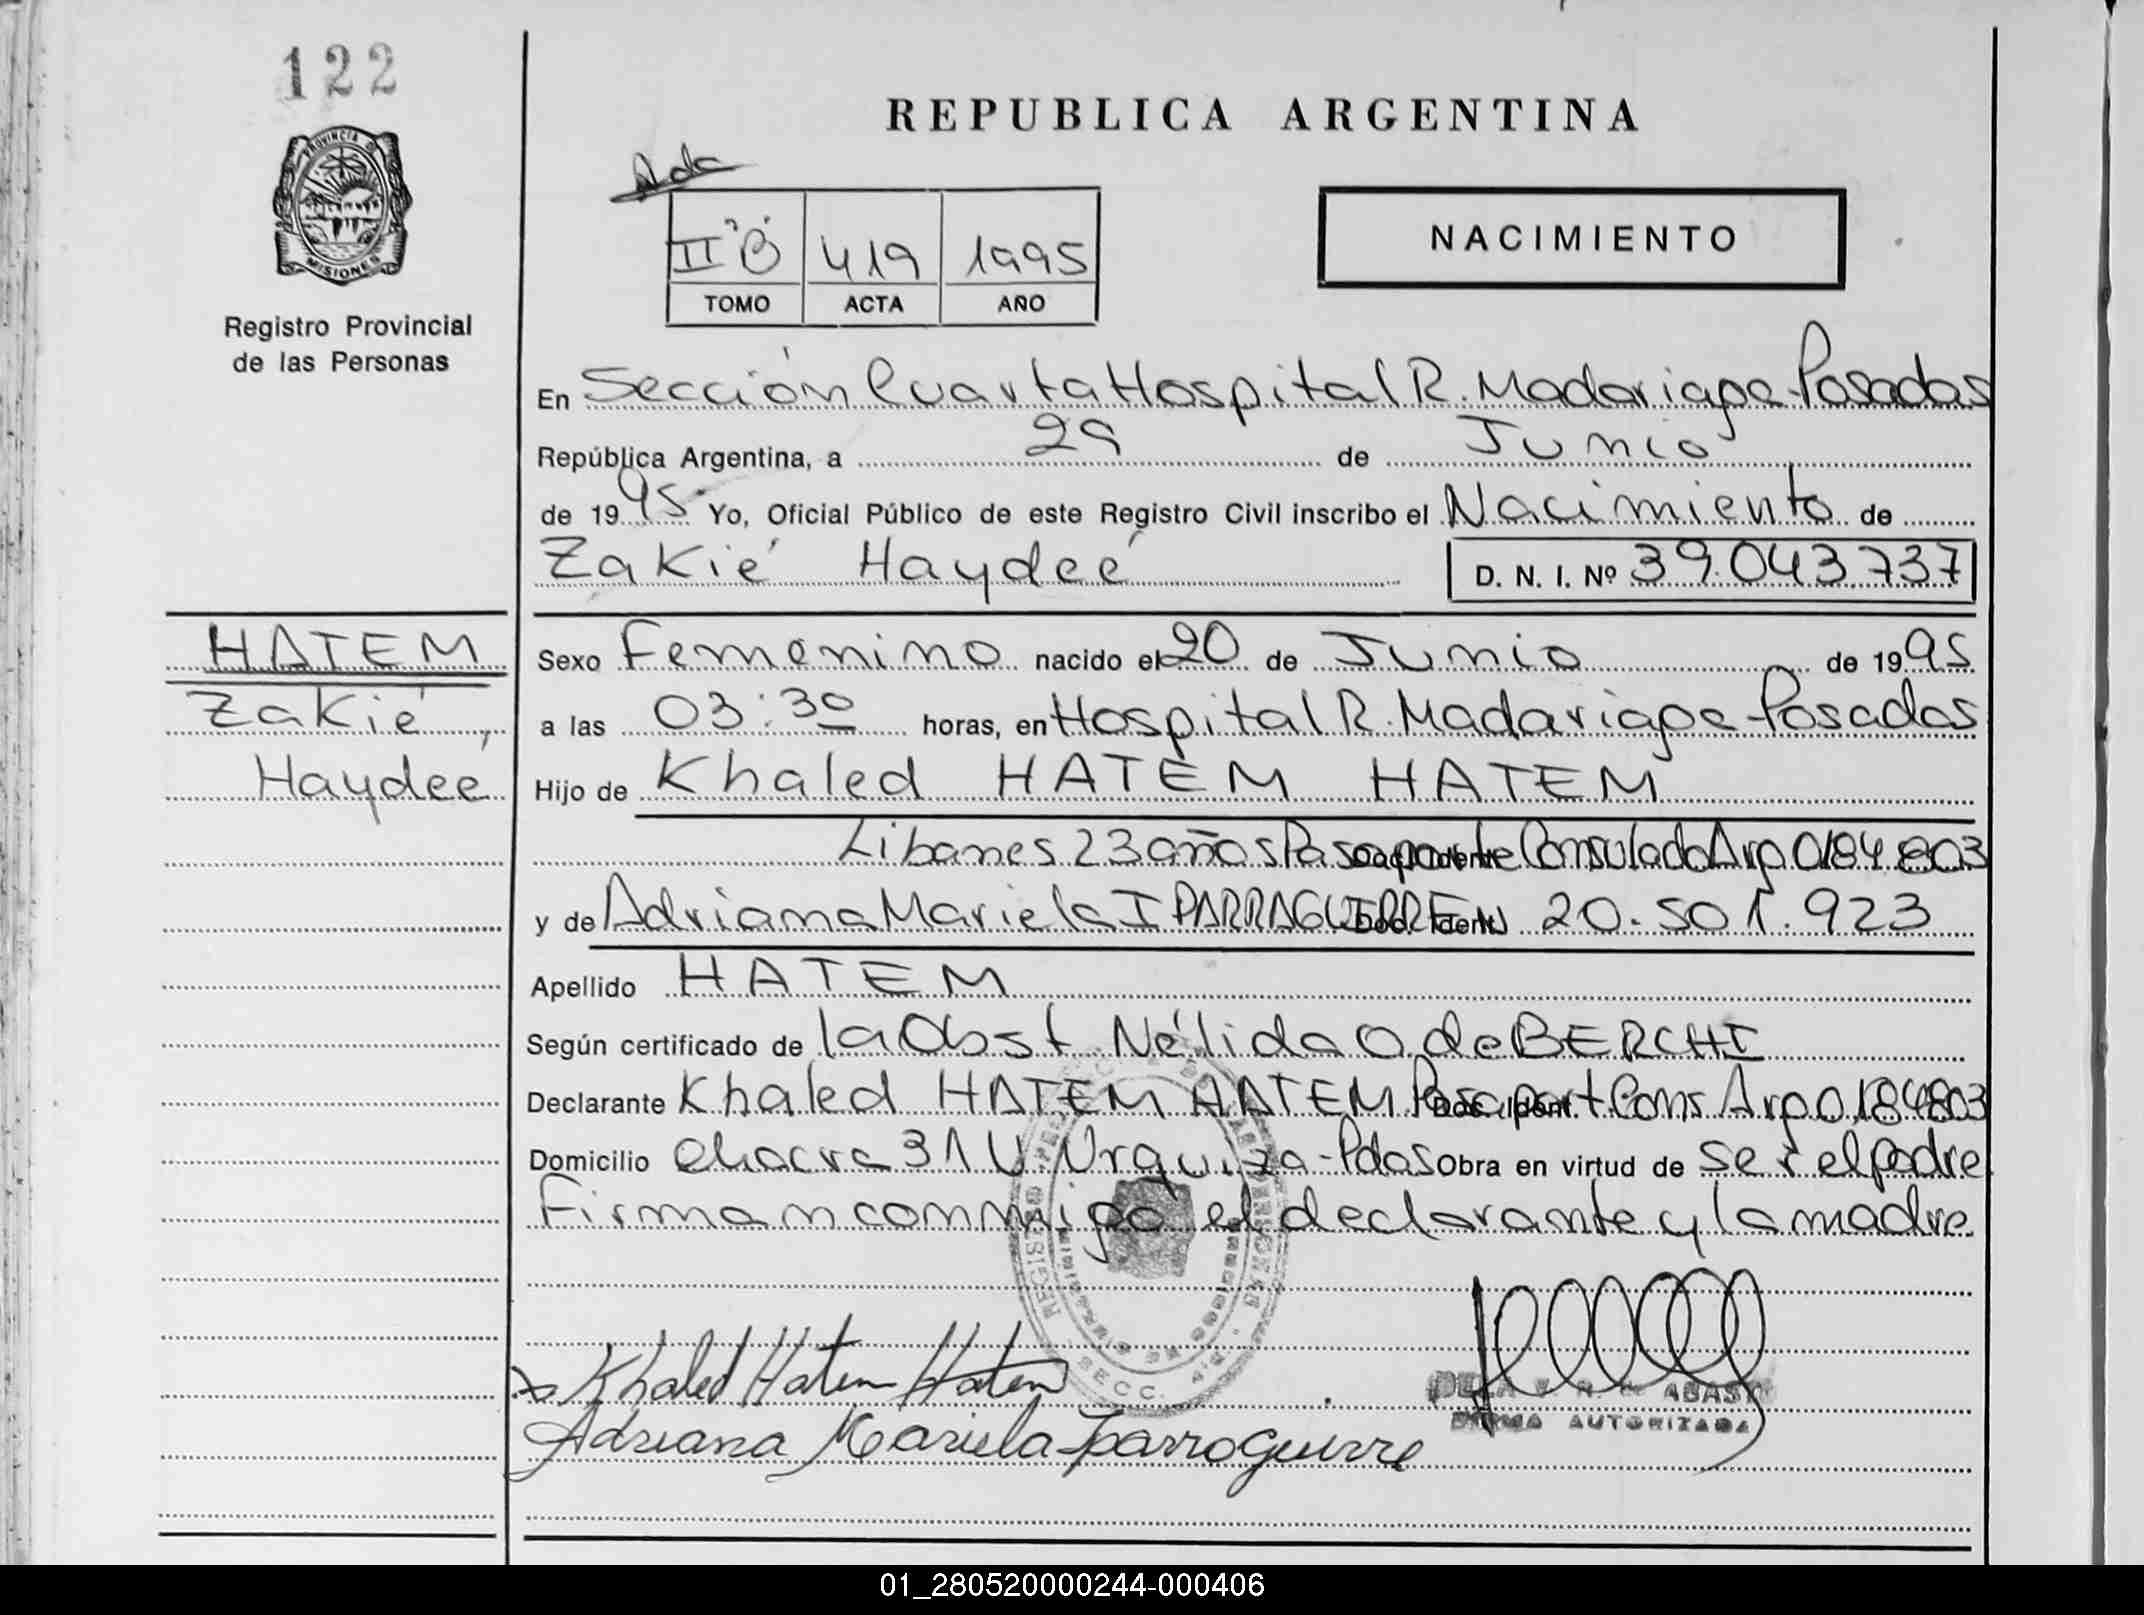 122
PROVINCIA D
MISIONES
Registro Provincial
de las Personas
REPUBLICA ARGENTINA
II "B" 419 1995
TOMO ACTA AÑO
NACIMIENTO
En Sección Cuarta Hospital R. Madariaga - Posadas
República Argentina, a 29 de Junio
de 1995. Yo, Oficial Público de este Registro Civil inscribo el Nacimiento de
Zakié Haydeé D. N. I. Nº 39.043.737
HATEM
Zakié,
Haydeé
Sexo Femenino nacido el 20 de Junio de 1995
a las 03:30 horas, en Hospital R. Madariaga - Posadas
Hijo de Khaled HATEM HATEM
Libanes 23 años Pasaporte Consulado Arg 0184803
y de Adriana Mariela IPARRAGUIRRE Doc. Ident. 20.501.923
Apellido HATEM
Según certificado de la Obst Nélida O. de BERCHI
Declarante Khaled HATEM HATEM Pasaport Cons Arg 0184803
Domicilio chacra 31 V. Urquiza - Pdas Obra en virtud de ser el padre
Firman conmigo el declarante y la madre.
REGISTRO
SECC. 4
Khaled Hatem Hatem
Adriana Mariela Iparraguirre
FIRMA AUTORIZADA
01_280520000244-000406